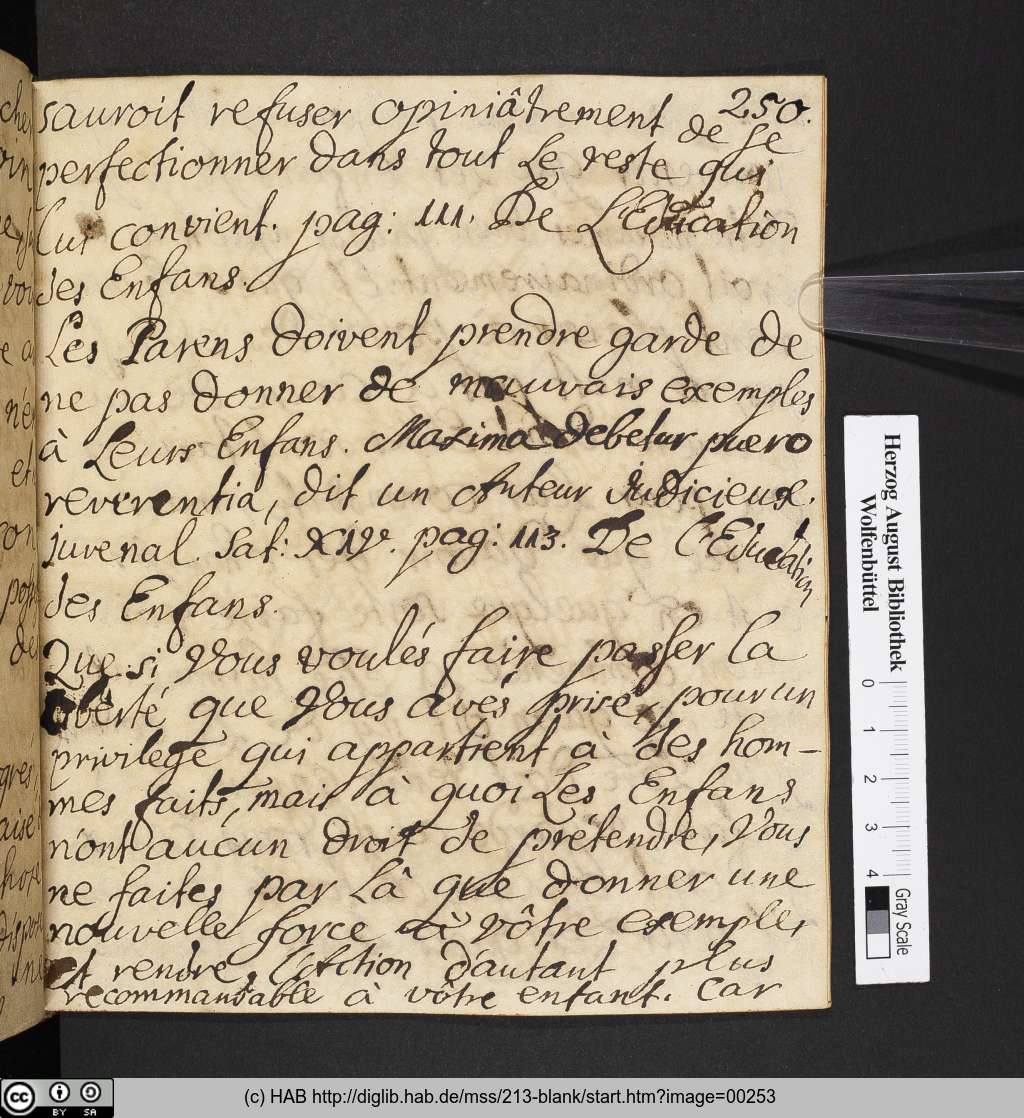 250.
sauroit refuser opiniâtrement de se
perfectionner dans tout Le reste qui
Lui convient. pag: 111. De L'Education
des Enfans.
Les Parens doivent prendre garde de
ne pas donner de mauvais exemples
à Leurs Enfans. Maxima debetur puero
reverentia, dit un Auteur Judicieux.
juvenal. Sat: XIV. pag: 113. De L'Education
des Enfans.
Que si Vous voulés faire passer la
liberté que Vous avés prise, pour un
privilege qui appartient à des hom-
mes faits, mais à quoi Les Enfans
n'ont aucun droit de prétendre, Vous
ne faites par Là que donner une
nouvelle force à vôtre exemple,
et rendre L'Action d'autant plus
recommandable à vôtre enfant. Car
Herzog August Bibliothek
Wolfenbüttel
0 1 2 3 4
Gray Scale
cc BY SA
(c) HAB http://diglib.hab.de/mss/213-blank/start.htm?image=00253